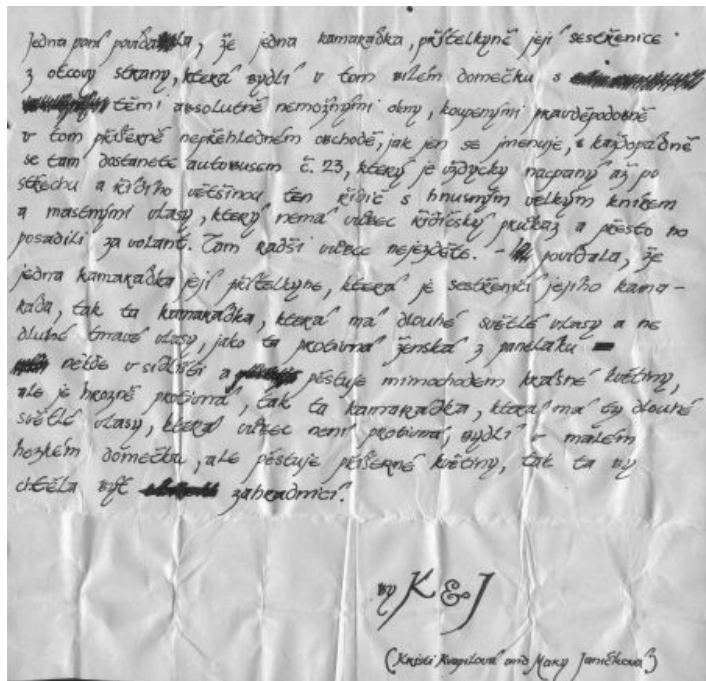 Jedna paní povídala, že jedna kamarádka, přítelkyně její sestřenice
z otcovy strany, která bydlí v tom bílém domečku s
těmi absolutně nemožnými okny, koupenými pravděpodobně
v tom příšerně nepřehledném obchodě, jak jen se jmenuje, každopádně
se tam dostanete autobusem č. 23, který je vždycky nacpaný až po
střechu a řídí ho většinou ten řidič s hnusným velkým knírem
a mastnými vlasy, který nemá vůbec řidičský průkaz a přesto ho
posadili za volant. Tam radši vůbec nejezděte. – povídala, že
jedna kamarádka její přítelkyně, která je sestřenicí jejího kama-
ráda, tak ta kamarádka, která má dlouhé světlé vlasy a ne
dluhé tmavé vlasy, jako ta protivná ženská z paneláku
někde v sídlišti a pěstuje mimochodem krásné květiny,
ale je hrozně protivná, tak ta kamarádka, která má ty dlouhé
světlé vlasy, která vůbec není protivná, bydlí v malém
hezkém domečku, ale pěstuje příšerné květiny, tak ta by
chtěla být zahradnicí.
by K & J
(Kristi Kvapilová and Mary Janíčková)